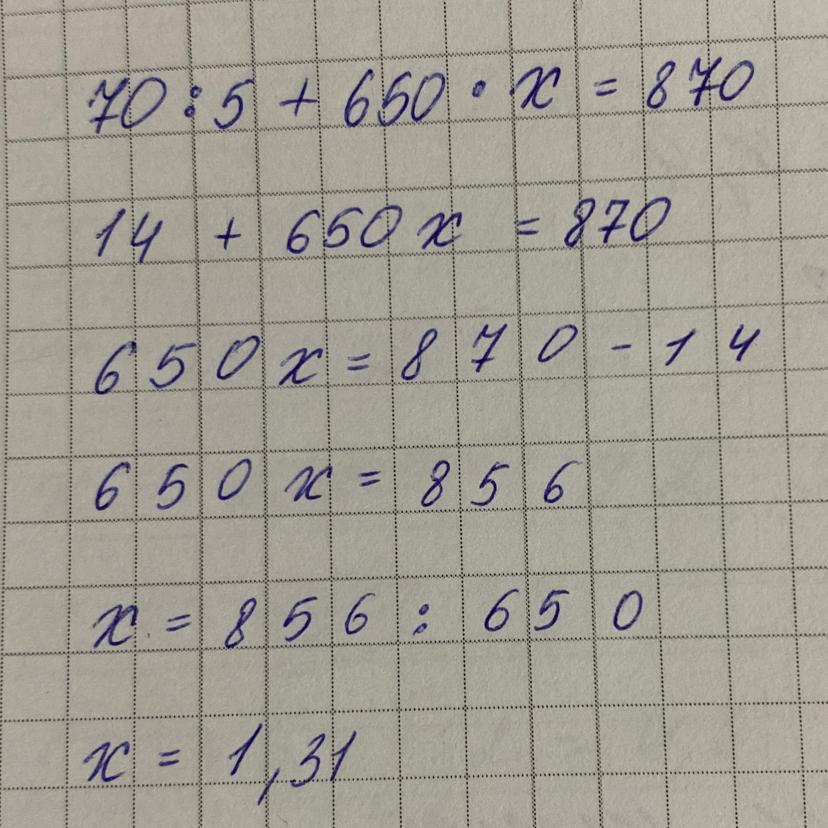 70 : 5 + 650 · x = 870
14 + 650 x = 870
650 x = 870 - 14
650 x = 856
x = 856 : 650
x = 1,31